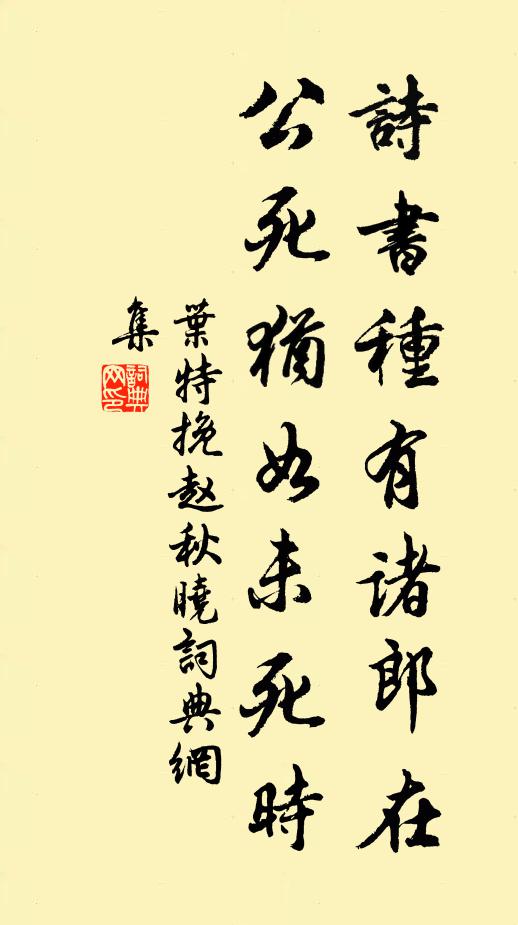 詩書種有诸郎在
公死猶如未死時
葉特挽赵秋曉詞典網
集
詞典
网印